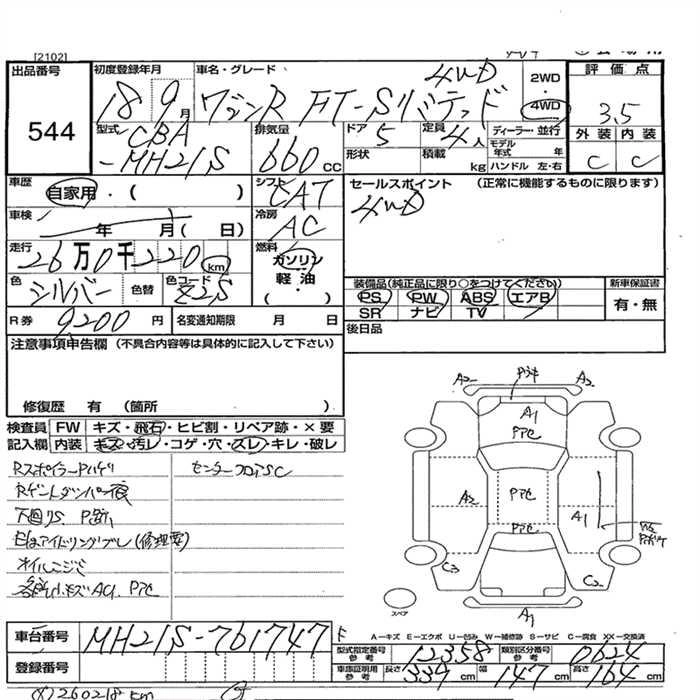 [2102]
出品番号 544
初度登録年月 18 9月
車名・グレード ワゴンR FT-Sリミテッド 4WD
2WD
4WD
評価点 3.5
外装 内装
C C
型式 CBA
-MH21S
排気量 660 cc
ドア 5
定員 4人
形状
積載 kg
ディーラー・並行
モデル年式 年
ハンドル 左・右
車歴 自家用・( )
シフト CAT
セールスポイント (正常に機能するものに限ります)
4WD
車検 年 月( 日)
冷房 AC
走行 26万0千220 km
燃料 ガソリン
軽油
・( )
色 シルバー 色替 色コード Z2S
装備品(純正品に限り○をつけてください)
PS PW ABS エアB
SR ナビ TV
新車保証書
有・無
R券 9200円
名変通知期限 月 日
後日品
注意事項申告欄 (不具合内容等は具体的に記入して下さい)
修復歴 有 (箇所 )
検査員記入欄
FW キズ・飛石・ヒビ割・リペア跡・×要
内装 キズ・汚レ・コゲ・穴・スレ・キレ・破レ
Rスポイラー Pハゲ
Rゲートダンパー
下回りS
アイドリングブレ(修理要)
オイルニジミ
小キズ A1
センター SC
A2 A2
A1
Pアセ
A2
Pアセ
A1
Pアセ
C3 C2
A1
スペア
A-キズ E-エクボ U-凹み W-補修跡 S-サビ C-腐食 XX-交換済
車台番号 MH21S-761747
型式指定番号 参考 12358
類別区分番号 参考 0624
登録番号
車庫証明用 参考 長さ 339 cm 幅 147 cm 高さ 164 cm
260218 km